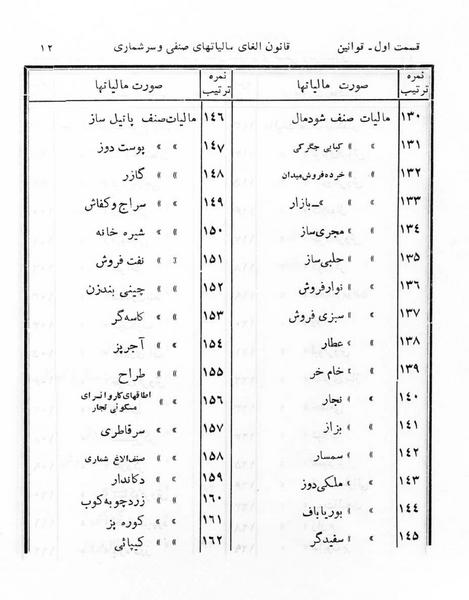 قسمت اول - قوانین
قانون الغای مالیاتهای صنفی و سرشماری
۱۲
نمره ترتیب
صورت مالیاتها
۱۳۰ مالیات صنف شودمال
۱۳۱ » » کبابی جگرکی
۱۳۲ » » خرده‌فروش میدان
۱۳۳ » » ــ بازار
۱۳۴ » » مجری‌ساز
۱۳۵ » » حلبی‌ساز
۱۳۶ » » نوارفروش
۱۳۷ » » سبزی فروش
۱۳۸ » » عطار
۱۳۹ » » خام خر
۱۴۰ » » نجار
۱۴۱ » » بزاز
۱۴۲ » » سمسار
۱۴۳ » » ملکی‌دوز
۱۴۴ » » بوریاباف
۱۴۵ » » سفیدگر
نمره ترتیب
صورت مالیاتها
۱۴۶ مالیات صنف پانیل ساز
۱۴۷ » » پوست دوز
۱۴۸ » » گازر
۱۴۹ » » سراج و کفاش
۱۵۰ » » شیره خانه
۱۵۱ » » نفت فروش
۱۵۲ » » چینی بندزن
۱۵۳ » » کاسه‌گر
۱۵۴ » » آجرپز
۱۵۵ » » طراح
۱۵۶ » » اطاقهای کاروانسرای
مسکونی تجار
۱۵۷ » » سرقاطری
۱۵۸ » » صنف الاغ شماری
۱۵۹ » » دکاندار
۱۶۰ » » زردچوبه‌کوب
۱۶۱ » » کوره پز
۱۶۲ » » کیبائی